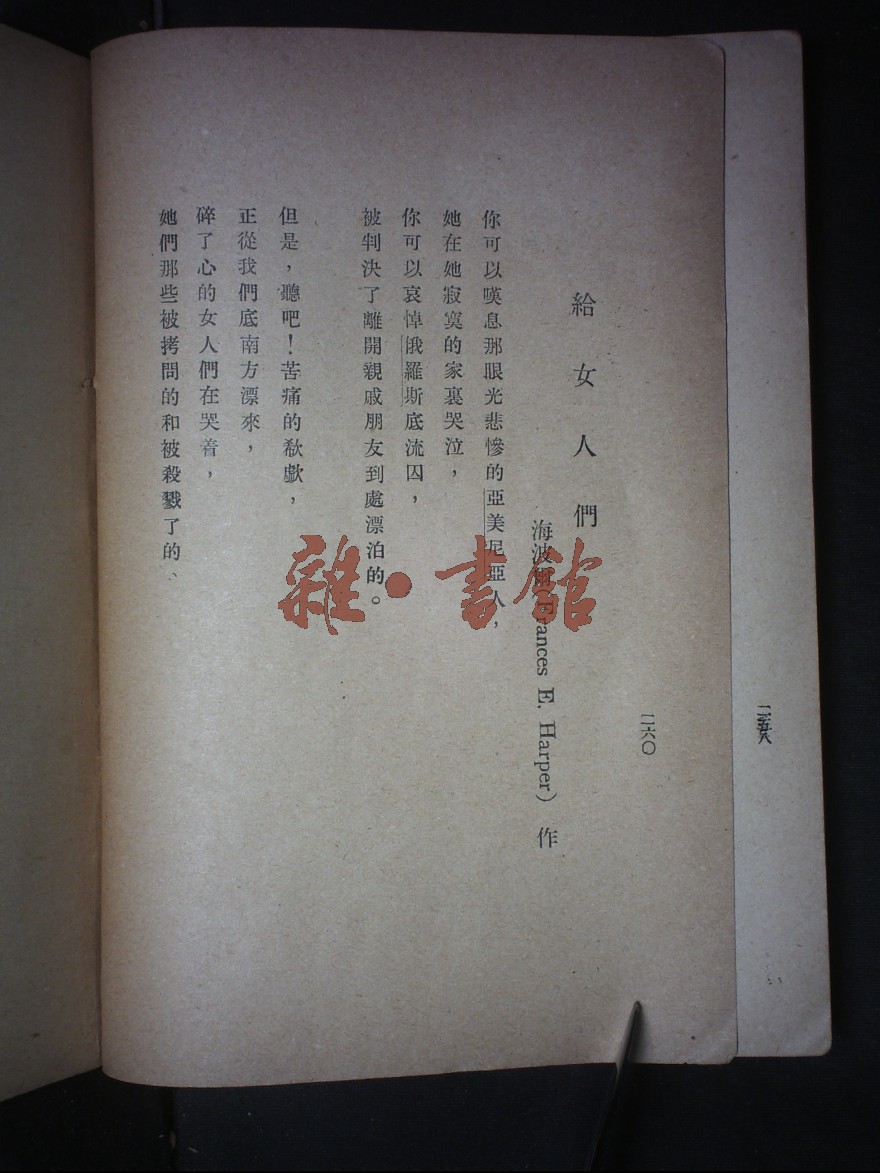 二六〇
給女人們
海波爾（Frances E. Harper）作
你可以嘆息那眼光悲慘的亞美尼亞人，
她在她寂寞的家裏哭泣，
你可以哀悼俄羅斯底流囚，
被判決了離開親戚朋友到處漂泊的。
但是，聽吧！苦痛的欷歔，
正從我們底南方漂來，
碎了心的女人們在哭着，
她們那些被拷問的和被殺戮了的、
雜·書館